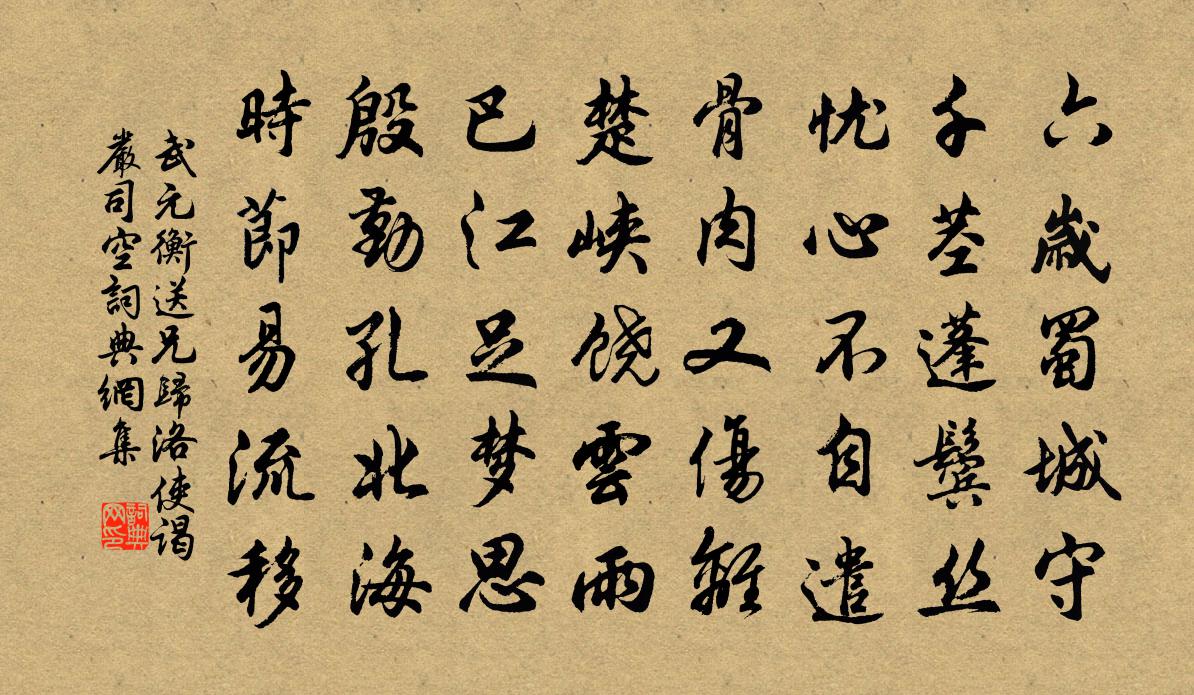 六歲蜀城守
千茎蓬鬓丝
忧心不自遣
骨肉又傷離
楚峡饶雲雨
巴江足梦思
殷勤孔北海
時節易流移
武元衡送兄歸洛使謁
嚴司空詞典網集
詞典网印